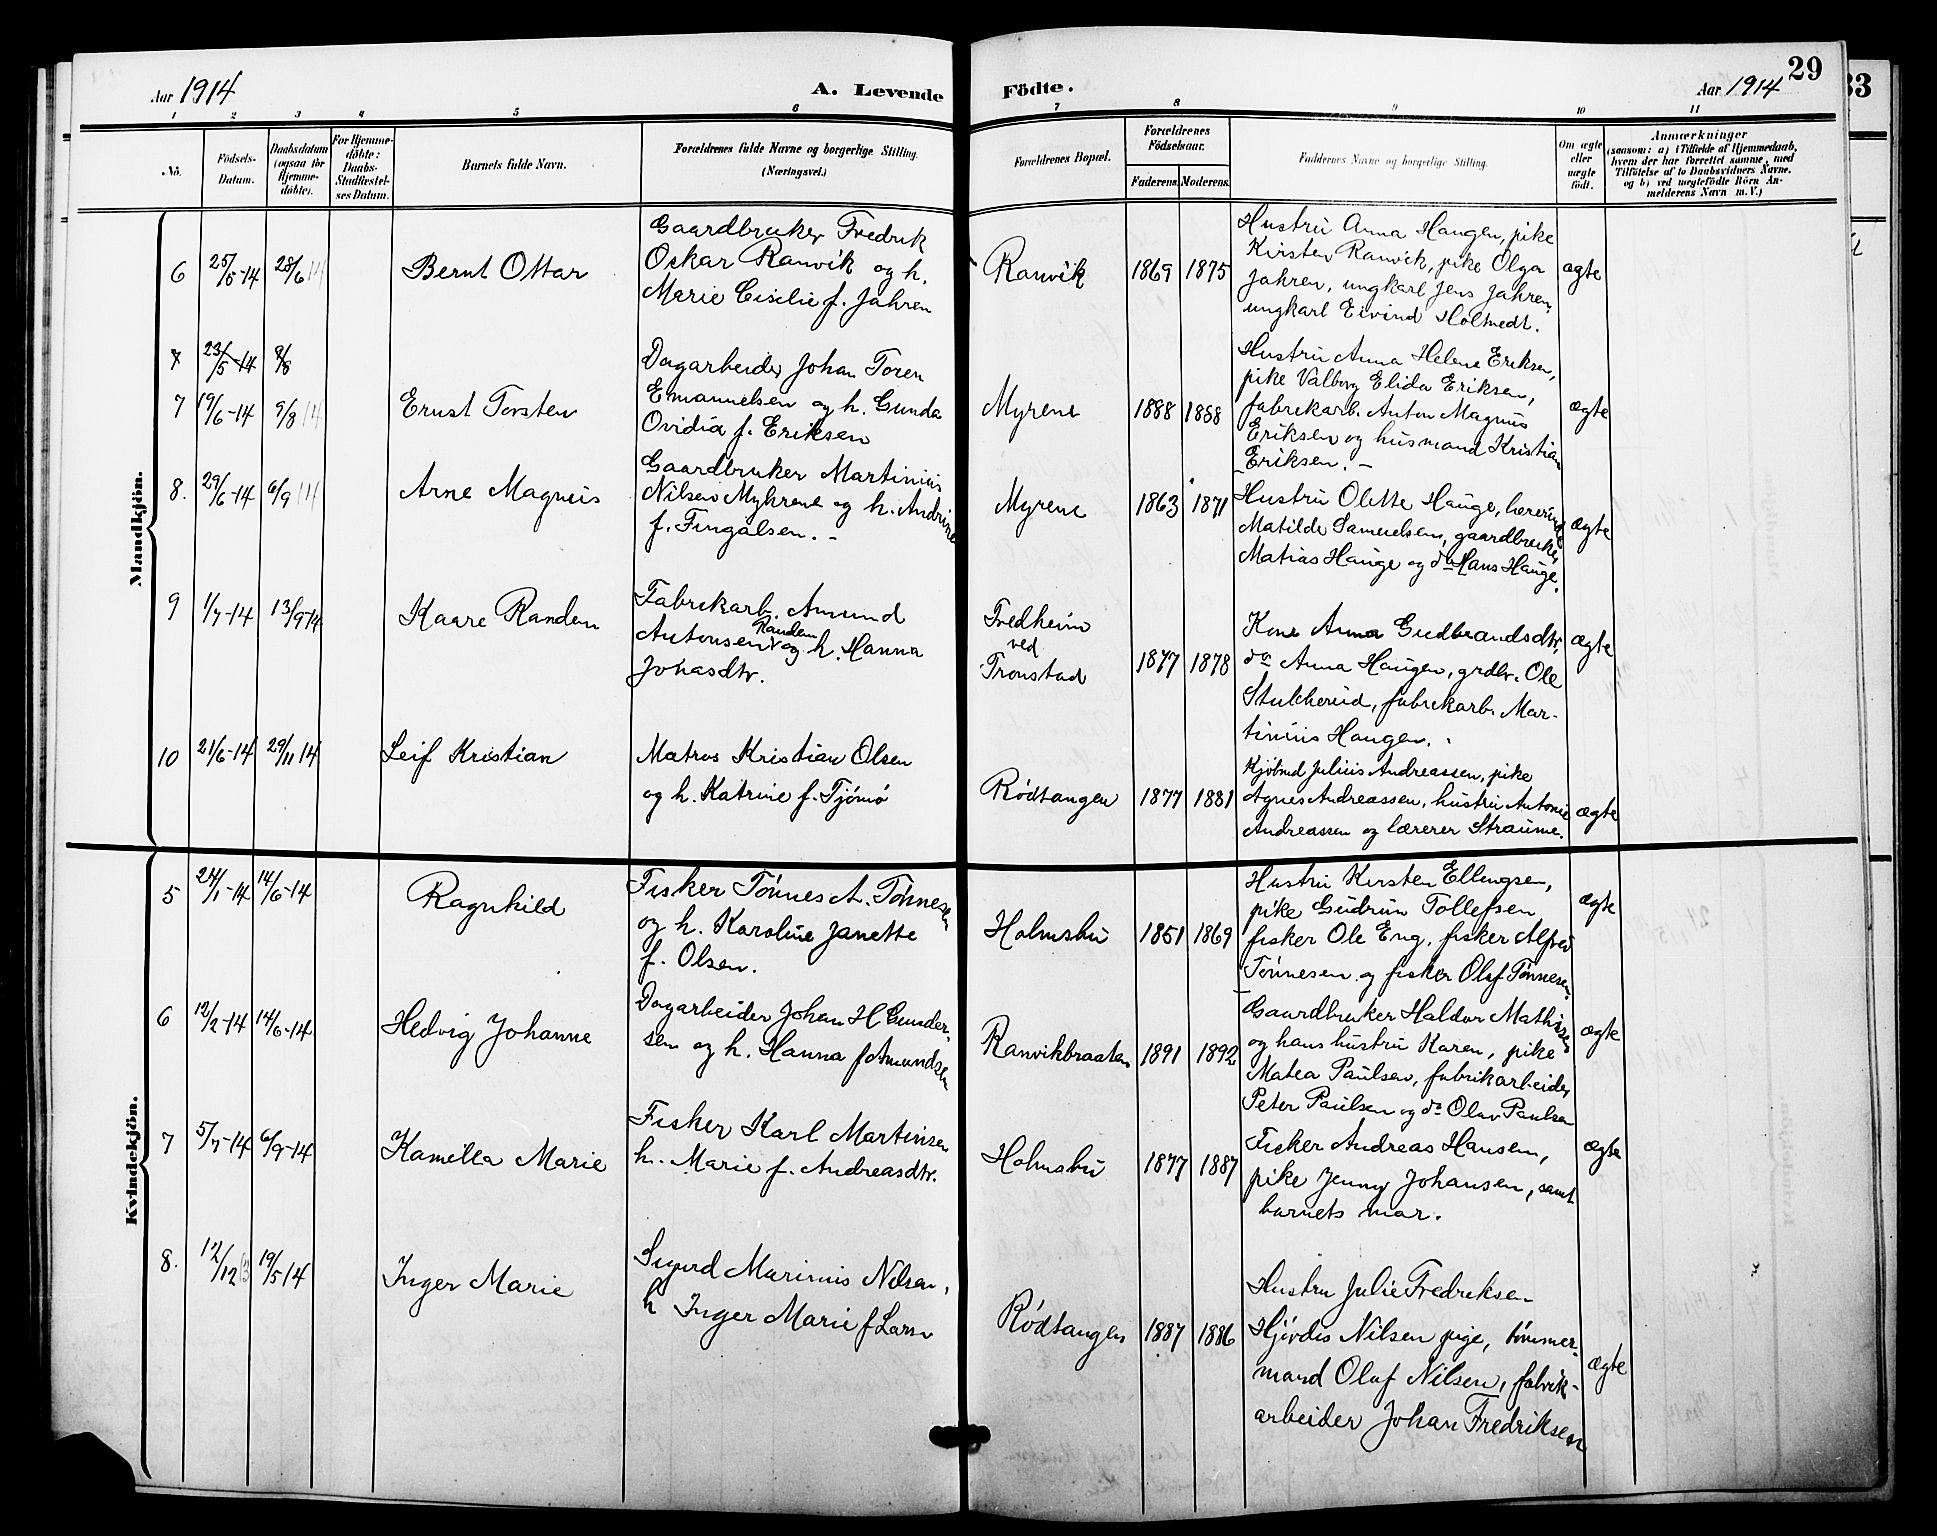 29
Aar 1914
A. Levende Födte.
Aar 1914
33
1 2 3 4 5 6 7 8 9 10 11
No.
Födsels-Datum.
Daabsdatum (ogsaa for Hjemme-döbte).
For Hjemme-döbte: Daabs-Stadfæstel-ses Datum.
Barnets fulde Navn.
Forældrenes fulde Navne og borgerlige Stilling. (Næringsvei.)
Forældrenes Bopæl.
Forældrenes Födselsaar.
Faderens. Moderens.
Faddernes Navne og borgerlige Stilling.
Om ægte eller uægte födt.
Anmærkninger
(saasom: a) i Tilfælde af Hjemmedaab, hvem der har forrettet samme, med Tilföielse af to Daabsvidners Navne, og b) ved uegtefödte Börn Anmelderens Navn m. V.)
Mandkjön.
6 25/5-14 28/6 14 Bernt Ottar
Gaardbruker Fredrik
Oskar Ranvik og h.
Marie Cicilie f. Jahren
Ranvik 1869 1875
Hustru Anna Haugen, pike
Kirsten Ranvik, pike Olga
Jahren, ungkarl Jens Jahren,
ungkarl Eivind Holtnedt.
ægte
7 23/5-14 9/8
7 19/6-14 9/8 14 Ernst Torsten
Dagarbeider Johan Toren
Emanuelsen og h. Gunda
Ovidia f. Eriksen
Myrene 1888 1888
Hustru Anna Helene Eriksen,
pike Valborg Elida Eriksen,
fabrikarb. Anton Magnus
Eriksen og husmand Kristian
Eriksen. -
ægte
8. 29/6-14 6/9 14 Arne Magnus
Gaardbruker Martinius
Nilsen Myhrene og h. Andrine
f. Fingalsen. -
Myrene 1863 1871
Hustru Olette Hauge, lærerinde
Matilde Samuelsen, gaardbruker
Matias Hauge og do Hans Hauge.
ægte
9 1/7-14 13/9 14 Kaare Randem
Fabrikarb. Amund
Antonsen Randem og h. Hanna
Johasdtr.
Fredheim
ved
Tronstad
1877 1878
Kone Anna Gudbrandsdtr,
do Anna Haugen, grdbr. Ole
Stubberud, fabrikarb. Mar-
tinius Haugen.
ægte
10 21/6-14 29/11 14 Leif Kristian
Matros Kristian Olsen
og h. Katrine f. Tjömö
Rödtangen 1877 1881
Kjöbmd Julius Andreassen, pike
Agnes Andreassen, hustru Antonie
Andreassen og lærerer Straume.
ægte
Kvindekjön.
5 24/1-14 14/6-14 Ragnhild
Fisker Tönnes A. Tönnesen
og h. Karoline Janette
f. Olsen.
Holmsbu 1851 1869
Hustru Kirsten Ellingsen,
pike Gudrun Tollefsen
fisker Ole Eng, fisker Alfred
Tönnesen og fisker Olaf Tönnesen.
ægte
6 12/2-14 14/6-14 Hedvig Johanne
Dagarbeider Johan H Gunder-
sen og h. Hanna f Amundsen
Ranvikbraaten 1891 1892
Gaardbruker Haldor Mathisen
og hans hustru Karen, pike
Matea Paulsen, fabrikarbeider
Peter Paulsen og do Olav Paulsen
ægte
7 5/7-14 6/9-14 Kamilla Marie
Fisker Karl Martinsen
h. Marie f. Andreasdtr.
Holmsbu 1877 1887
Fisker Andreas Hansen,
pike Jenny Johansen, samt
barnets mor.
ægte
8. 12/12 13 19/5 14 Inger Marie
Sigurd Marinius Nilsen,
h Inger Marie f Larsen
Rödtangen 1887 1886
Hustru Julie Fredriksen
Hjördis Nilsen pige, tömmer-
mand Olaf Nilsen, fabrik-
arbeider Johan Fredriksen
ægte